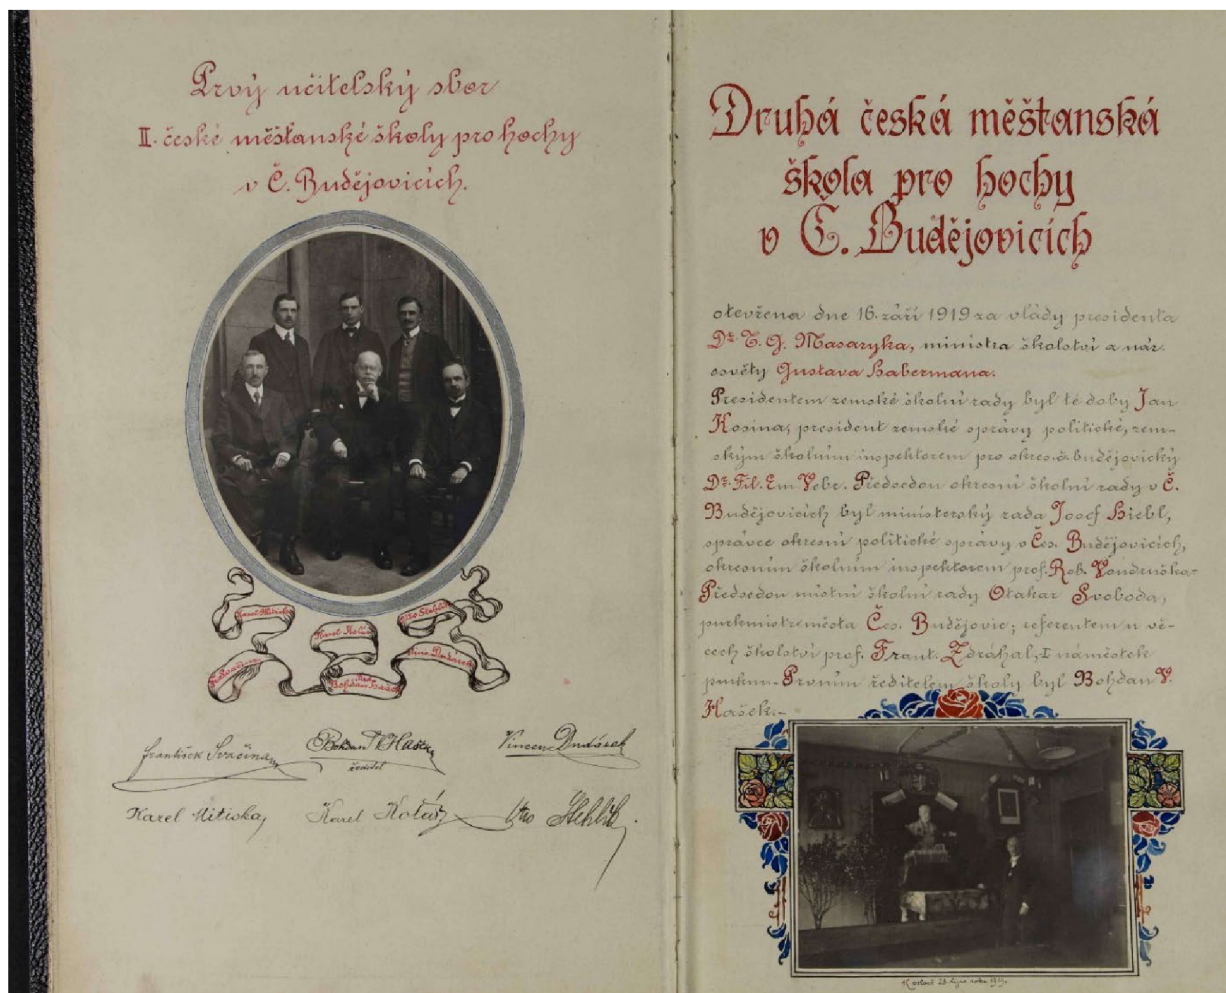 Prvý učitelský sbor
II. české měšťanské školy pro hochy
v Č. Budějovicích.
Karel Mitiska
Otto Stehlík
Karel Kolář
Vinc. Dudásek
Bohdan Hašek
František Svačina
Bohdan V Hašek
ředitel
Vincenc Dudásek
Karel Mitiska
Karel Kolář
Otto Stehlík
Druhá česká měšťanská
škola pro hochy
v Č. Budějovicích
otevřena dne 16. září 1919 za vlády presidenta
Dr. T. G. Masaryka, ministra školství a nár.
osvěty Gustava Habermana.
Presidentem zemské školní rady byl té doby Jan
Kosina, president zemské správy politické, zem-
ským školním inspektorem pro okres č. budějovický
Dr. Fil. Em Vebr. Předsedou okresní školní rady v Č.
Budějovicích byl ministerský rada Josef Hiebl,
správce okresní politické správy v Čes. Budějovicích,
okresním školním inspektorem prof. Rob. Vondruška.
Předsedou místní školní rady Otakar Svoboda,
purkmistr města Čes. Budějovic; referentem u vě-
cech školství prof. Frant. Zdráhal, I náměstek
purkm. Prvním ředitelem školy byl Bohdan V.
Hašek.-
28 října roku 1919.